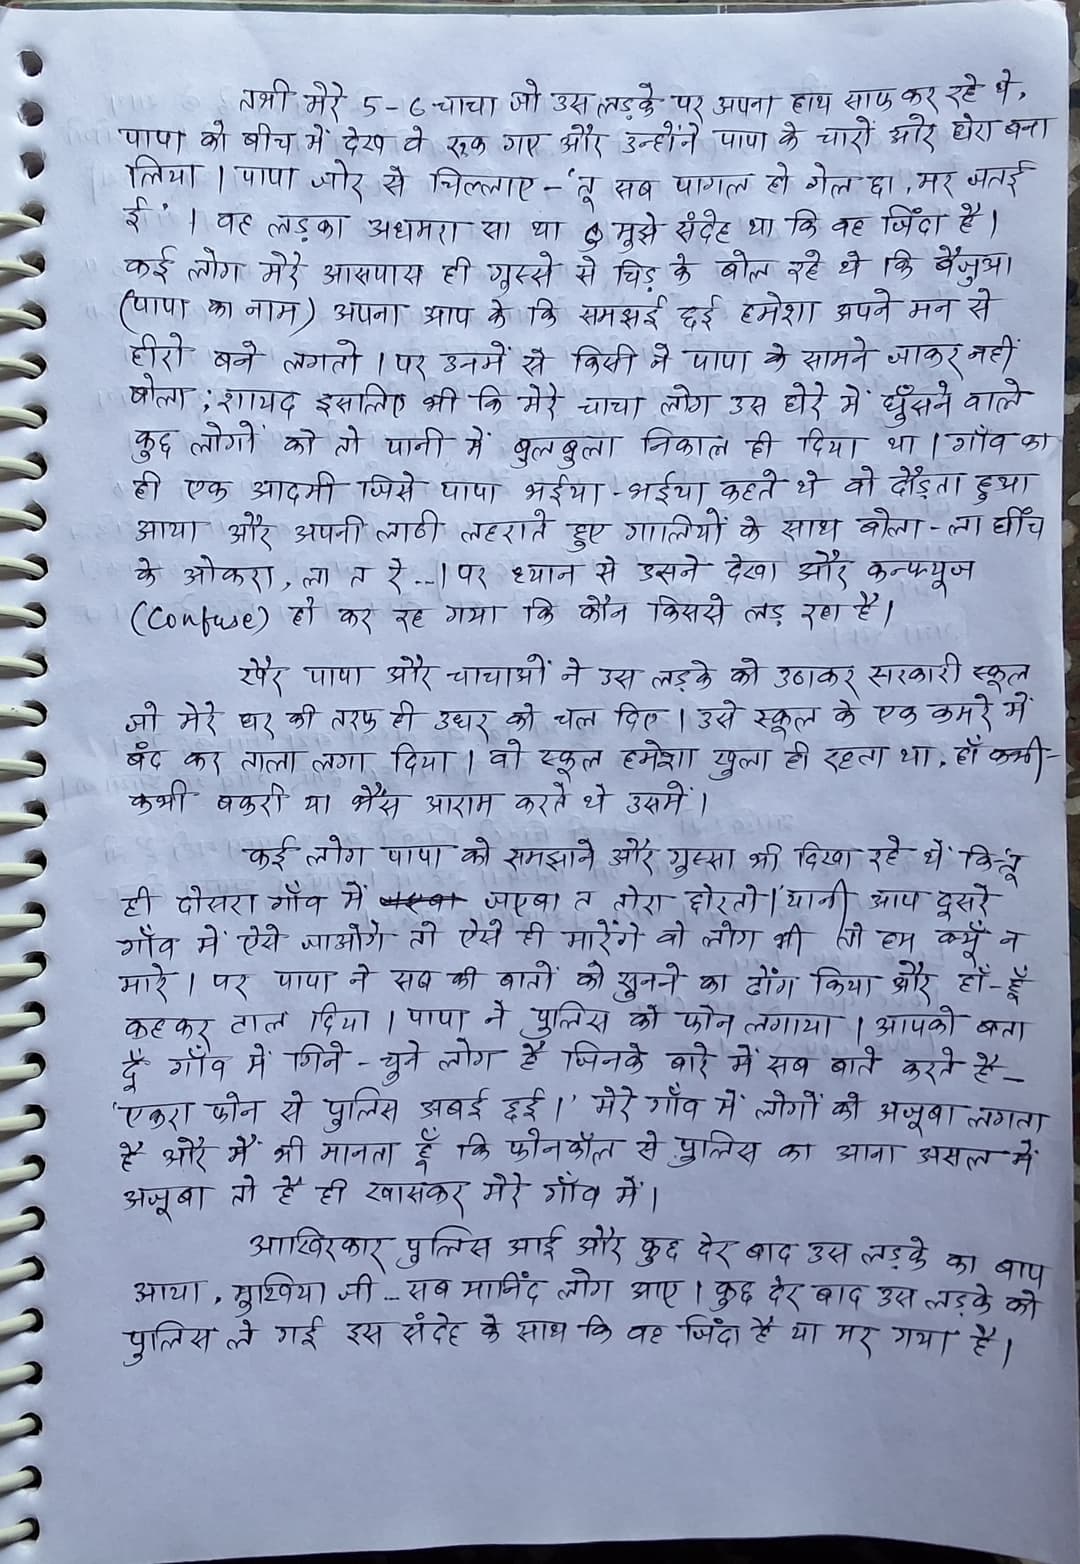 तभी मेरे 5-6 चाचा जो उस लड़के पर अपना हाथ साफ कर रहे थे,
पापा को बीच में देख वे रूक गए और उन्होंने पापा के चारों ओर घेरा बना
लिया । पापा जोर से चिल्लाए - 'तू सब पागल हो गेल छा, मर जतई
ई' । वह लड़का अधमरा सा था मुझे संदेह था कि वह जिंदा है ।
कई लोग मेरे आसपास ही गुस्से से चिड़ के बोल रहे थे कि बैजुआ
(पापा का नाम) अपना आप के कि समझई छई हमेशा अपने मन से
हीरो बने लगतो । पर उनमें से किसी ने पापा के सामने जाकर नहीं
बोला ; शायद इसलिए भी कि मेरे चाचा लोग उस घेरे में घुँसने वाले
कुछ लोगों को तो पानी में बुलबुला निकाल ही दिया था । गाँव का
ही एक आदमी जिसे पापा भईया-भईया कहते थे वो दौड़ता हुआ
आया और अपनी लाठी लहराते हुए गालियों के साथ बोला - ला घींच
के ओकरा, ला त रे ..। पर ध्यान से उसने देखा और कन्फ्यूज
(Confuse) हो कर रह गया कि कौन किससे लड़ रहा है ।
खैर पापा और चाचाओं ने उस लड़के को उठाकर सरकारी स्कूल
जो मेरे घर की तरफ ही उधर को चल दिए । उसे स्कूल के एक कमरे में
बंद कर ताला लगा दिया । वो स्कूल हमेशा खुला ही रहता था, हाँ कभी-
कभी बकरी या भैंस आराम करते थे उसमें ।
कई लोग पापा को समझाने और गुस्सा भी दिखा रहे थें कि 'तूं
ही दोसरा गाँव में जएबा त तोरा छोरतो ।' यानी आप दूसरे
गाँव में ऐसे जाओगे तो ऐसे ही मारेंगे वो लोग भी तो हम क्यूँ न
मारे । पर पापा ने सब की बातों को सुनने का ढोंग किया और हाँ-हूँ
कहकर टाल दिया । पापा ने पुलिस को फोन लगाया । आपको बता
दूँ गाँव में गिने-चुने लोग है जिनके बारे में सब बाते करते है -
'एकरा फोन से पुलिस अबई छई ।' मेरे गाँव में लोगों को अजूबा लगता
है और मैं भी मानता हूँ कि फोनकॉल से पुलिस का आना असल में
अजूबा तो है ही खासकर मेरे गाँव में ।
आखिरकार पुलिस आई और कुछ देर बाद उस लड़के का बाप
आया, मुखिया जी - सब मानिंद लोग आए । कुछ देर बाद उस लड़के को
पुलिस ले गई इस संदेह के साथ कि वह जिंदा है या मर गया है ।